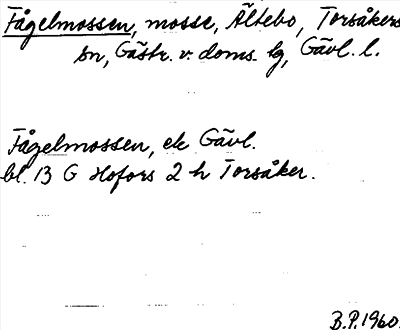 Fågelmossen, mosse, Ältebo, Torsåkers
sn, Gästr. v. doms. hg, Gävl. l.
Fågelmossen, ek Gävl.
bl. 13 G Hofors 2 h Torsåker.
B.P. 1960.